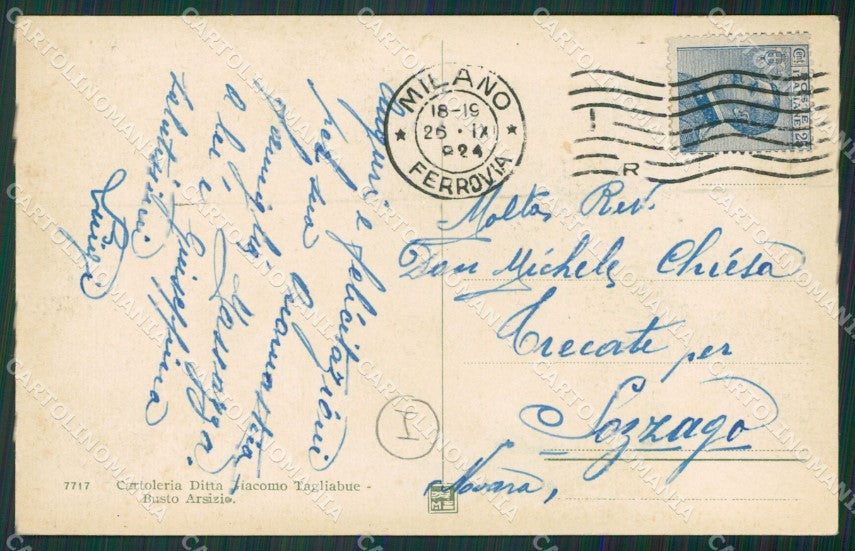 auguri e felicitazioni
per suo onomastico
famiglia Massazza.
a lei e Giuseppina
salutissimi
Luigi
MILANO
18-19
26 · IX
924
FERROVIA
R
POSTE
ITALIANE
Cent
25
Molto Rev.
Don Michele Chiesa
Trecate per
Sozzago
Novara,
7717 Cartoleria Ditta Giacomo Tagliabue -
Busto Arsizio.
CARTOLINOMANIA